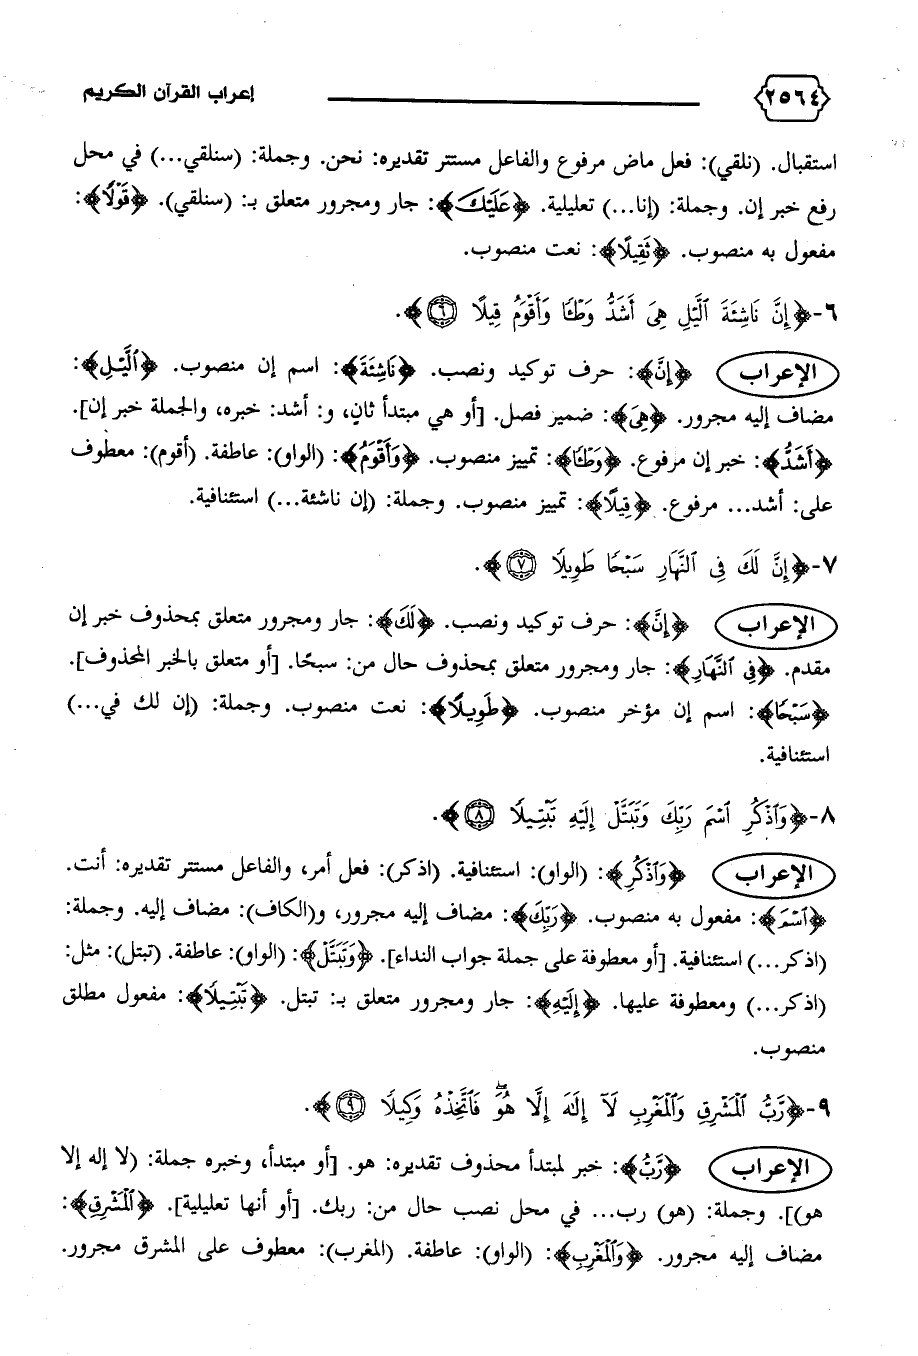 ٢٥٦٤ إعراب القرآن الكريم
استقبال. (نلقي): فعل ماض مرفوع والفاعل مستتر تقديره: نحن. وجملة: (سنلقي...) في محل
رفع خبر إن. وجملة: (إنا...) تعليلية. ﴿عَلَيْكَ﴾: جار ومجرور متعلق بـ: (سنلقي). ﴿قَوْلًا﴾:
مفعول به منصوب. ﴿ثَقِيلًا﴾: نعت منصوب.
٦-﴿إِنَّ نَاشِئَةَ ٱلَّيْلِ هِىَ أَشَدُّ وَطْـًٔا وَأَقْوَمُ قِيلًا ٦﴾.
الإعراب ﴿إِنَّ﴾: حرف توكيد ونصب. ﴿نَاشِئَةَ﴾: اسم إن منصوب. ﴿ٱلَّيْلِ﴾:
مضاف إليه مجرور. ﴿هِىَ﴾: ضمير فصل. [أو هي مبتدأ ثانٍ، و: أشد: خبره، والجملة خبر إن].
﴿أَشَدُّ﴾: خبر إن مرفوع. ﴿وَطْـًٔا﴾: تمييز منصوب. ﴿وَأَقْوَمُ﴾: (الواو): عاطفة. (أقوم): معطوف
على: أشد... مرفوع. ﴿قِيلًا﴾: تمييز منصوب. وجملة: (إن ناشئة...) استئنافية.
٧-﴿إِنَّ لَكَ فِى ٱلنَّهَارِ سَبْحًا طَوِيلًا ٧﴾.
الإعراب ﴿إِنَّ﴾: حرف توكيد ونصب. ﴿لَكَ﴾: جار ومجرور متعلق بمحذوف خبر إن
مقدم. ﴿فِى ٱلنَّهَارِ﴾: جار ومجرور متعلق بمحذوف حال من: سبحًا. [أو متعلق بالخبر المحذوف].
﴿سَبْحًا﴾: اسم إن مؤخر منصوب. ﴿طَوِيلًا﴾: نعت منصوب. وجملة: (إن لك في...)
استئنافية.
٨-﴿وَٱذْكُرِ ٱسْمَ رَبِّكَ وَتَبَتَّلْ إِلَيْهِ تَبْتِيلًا ٨﴾.
الإعراب ﴿وَٱذْكُرِ﴾: (الواو): استئنافية. (اذكر): فعل أمر، والفاعل مستتر تقديره: أنت.
﴿ٱسْمَ﴾: مفعول به منصوب. ﴿رَبِّكَ﴾: مضاف إليه مجرور، و(الكاف): مضاف إليه. وجملة:
(اذكر...) استئنافية. [أو معطوفة على جملة جواب النداء]. ﴿وَتَبَتَّلْ﴾: (الواو): عاطفة. (تبتل): مثل:
(اذكر...) ومعطوفة عليها. ﴿إِلَيْهِ﴾: جار ومجرور متعلق بـ: تبتل. ﴿تَبْتِيلًا﴾: مفعول مطلق
منصوب.
٩-﴿رَّبُّ ٱلْمَشْرِقِ وَٱلْمَغْرِبِ لَآ إِلَـٰهَ إِلَّا هُوَ ۖ فَٱتَّخِذْهُ وَكِيلًا ٩﴾.
الإعراب ﴿رَّبُّ﴾: خبر لمبتدأ محذوف تقديره: هو. [أو مبتدأ، وخبره جملة: (لا إله إلا
هو)]. وجملة: (هو) رب... في محل نصب حال من: ربك. [أو أنها تعليلية]. ﴿ٱلْمَشْرِقِ﴾:
مضاف إليه مجرور. ﴿وَٱلْمَغْرِبِ﴾: (الواو): عاطفة. (المغرب): معطوف على المشرق مجرور.